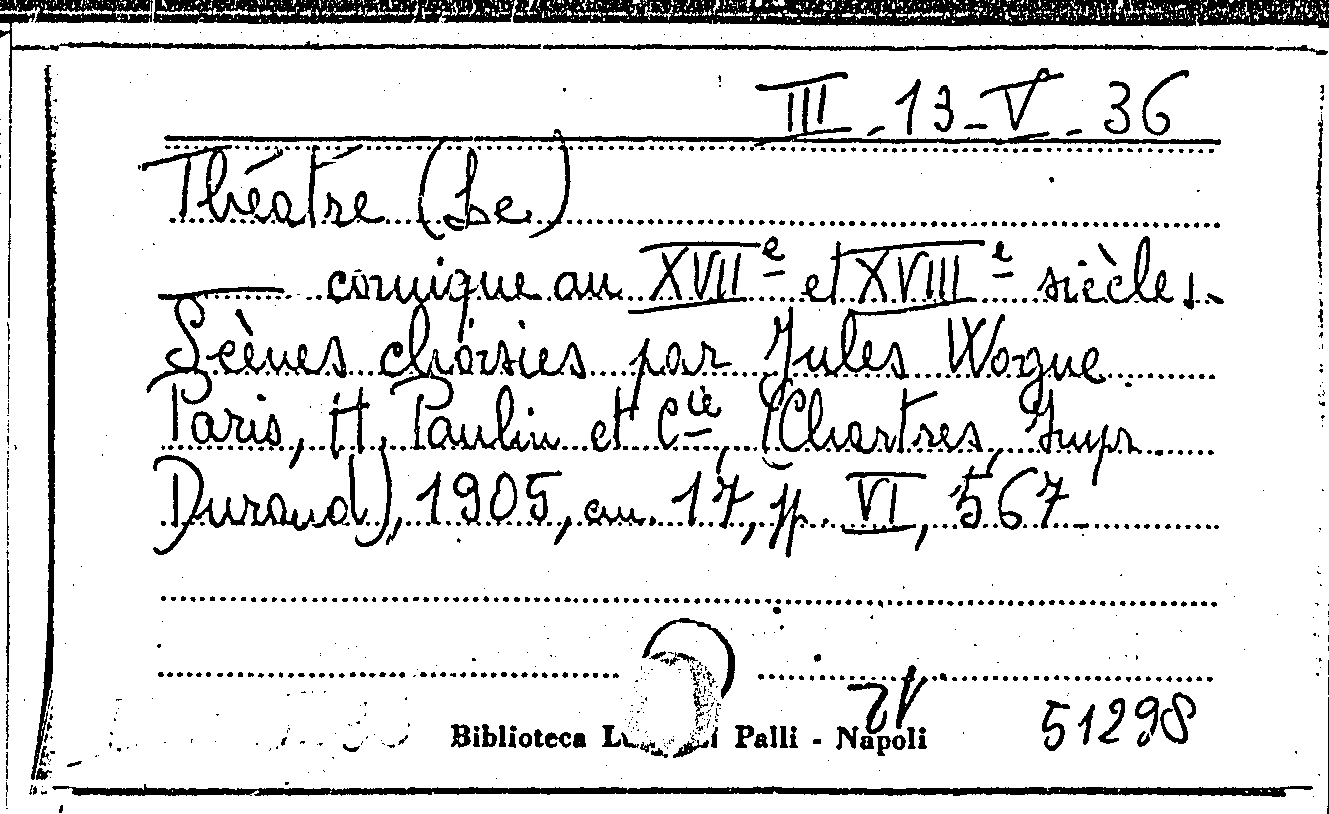 III - 13 - V - 36
Théatre (Le)
—— comique au XVIIe et XVIIIe siècles.
Scènes choisies par Jules Wogue
Paris, H. Paulin et Cie, (Chartres, Impr.
Durand), 1905, cm. 17, pp. VI, 567
Biblioteca Palli - Napoli
51298